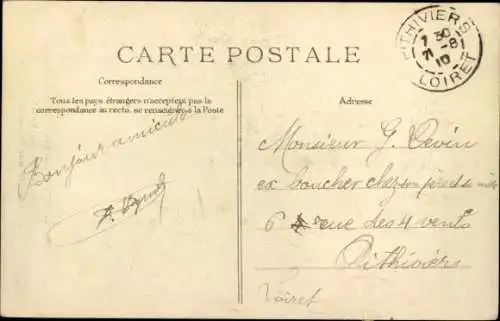 CARTE POSTALE
Correspondance
Tous les pays étrangers n'acceptent pas la
correspondance au recto, se renseigner à la Poste
Adresse
PITHIVIERS
7 30
21 -8
10
LOIRET
Bonjour amical
Monsieur G. Cevin
ex boucher chez
6 rue des 4 vents
Pithiviers
Loiret